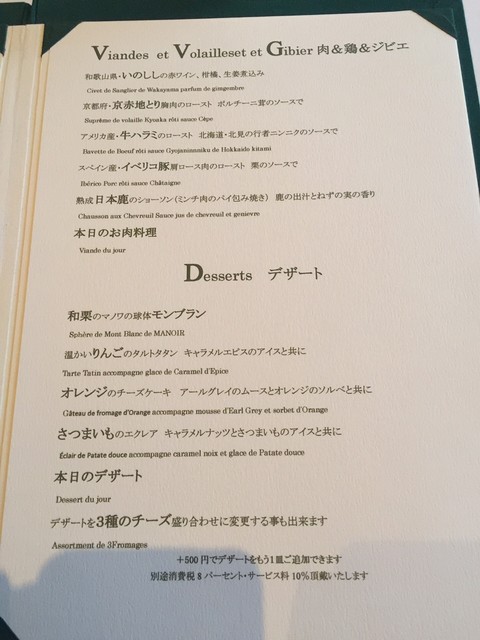 Viandes et Volailleset et Gibier 肉＆鶏＆ジビエ
和歌山県・いのししの赤ワイン、柑橘、生姜煮込み
Civet de Sanglier de Wakayama parfum de gimgembre
京都府・京赤地とり胸肉のロースト ポルチーニ茸のソースで
Suprême de volaille Kyoaka rôti sauce Cèpe
アメリカ産・牛ハラミのロースト 北海道・北見の行者ニンニクのソースで
Bavette de Bœuf rôti sauce Gyojaninnniku de Hokkaido kitami
スペイン産・イベリコ豚肩ロース肉のロースト 栗のソースで
Ibérico Porc rôti sauce Châtaigne
熟成日本鹿のショーソン（ミンチ肉のパイ包み焼き） 鹿の出汁とねずの実の香り
Chausson aux Chevreuil Sauce jus de chevreuil et genievre
本日のお肉料理
Viande du jour
Desserts デザート
和栗のマノワの球体モンブラン
Sphère de Mont Blanc de MANOIR
温かいりんごのタルトタタン キャラメルエピスのアイスと共に
Tarte Tatin accompagne glace de Caramel d'Epice
オレンジのチーズケーキ アールグレイのムースとオレンジのソルベと共に
Gâteau de fromage d'Orange accompagne mousse d'Earl Grey et sorbet d'Orange
さつまいものエクレア キャラメルナッツとさつまいものアイスと共に
Éclair de Patate douce accompagne caramel noix et glace de Patate douce
本日のデザート
Dessert du jour
デザートを3種のチーズ盛り合わせに変更する事も出来ます
Assortment de 3Fromages
＋500 円でデザートをもう1皿ご追加できます
別途消費税 8 パーセント・サービス料 10％頂戴いたします